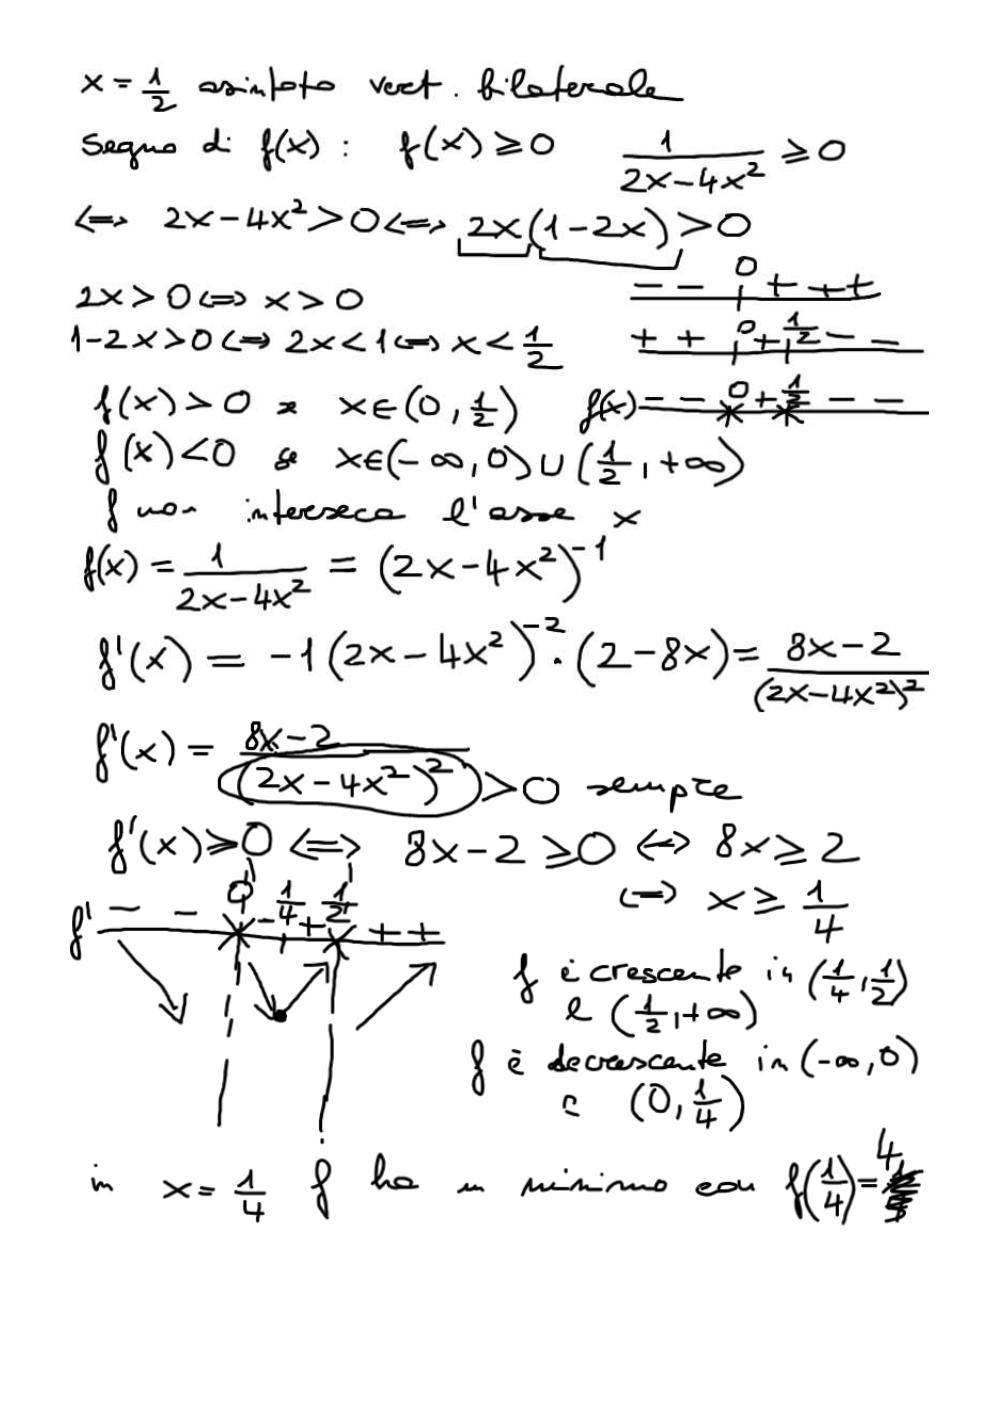 x = 1/2 asintoto vert. bilaterale
Segno di f(x) : f(x) ≥ 0 1/(2x-4x²) ≥ 0
⟺ 2x-4x² > 0 ⟺ 2x(1-2x) > 0
2x > 0 ⟺ x > 0 - - 0 + + +
1-2x > 0 ⟺ 2x < 1 ⟺ x < 1/2 + + 0 + 1/2 - -
f(x) > 0 se x∈(0, 1/2) f(x) - - 0 + 1/2 - -
f(x) < 0 se x∈(-∞, 0) ∪ (1/2, +∞)
f non interseca l'asse x
f(x) = 1/(2x-4x²) = (2x-4x²)⁻¹
f'(x) = -1(2x-4x²)⁻² · (2-8x) = (8x-2)/(2x-4x²)²
f'(x) = (8x-2)/(2x-4x²)² > 0 sempre
f'(x) ≥ 0 ⟺ 8x-2 ≥ 0 ⟺ 8x ≥ 2
⟺ x ≥ 1/4
f' - - 0 - 1/4 + 1/2 + +
f è crescente in (1/4, 1/2)
e (1/2, +∞)
f è decrescente in (-∞, 0)
e (0, 1/4)
in x = 1/4 f ha un minimo con f(1/4) = 4